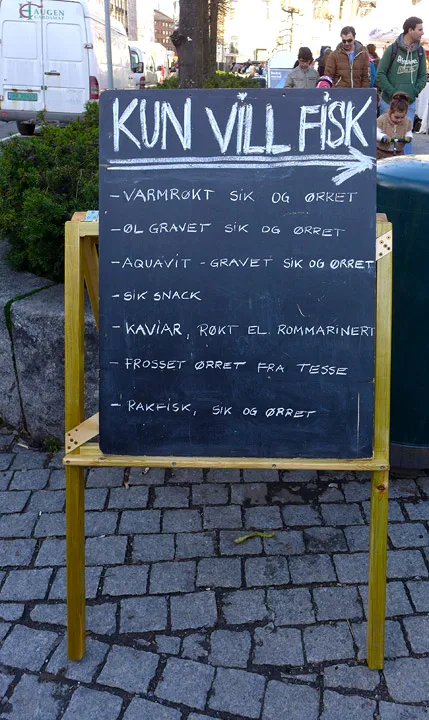 HAUGEN
KUN VILL FISK
- VARMRØKT SIK OG ØRKET
- ØL GRAVET SIK OG ØRRET
- AQUAVIT - GRAVET SIK OG ØRRET
- SIK SNACK
- KAVIAR, RØKT EL. ROMMARINERT
- FROSSET ØRRET FRA TESSE
- RAKFISK, SIK OG ØRRET